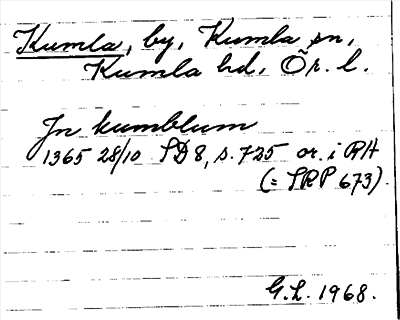 Kumla, by, Kumla sn,
Kumla hd, Ör. l.
Jn kumblum
1365 28/10 SD 8, s. 725 or. i RA
(= SRP 673).
G.L. 1968.